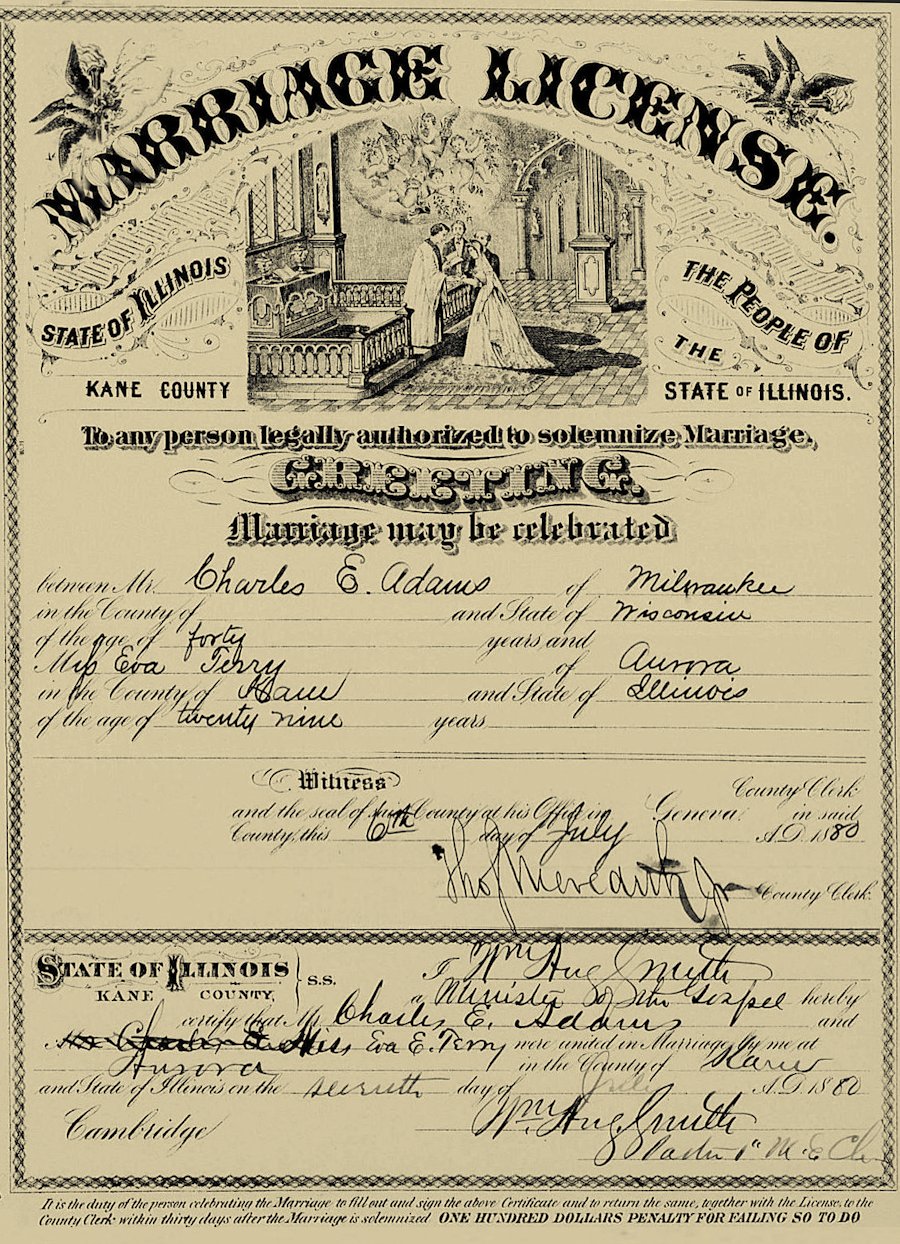 MARRIAGE LICENSE.
STATE OF ILLINOIS
KANE COUNTY
THE PEOPLE OF
THE
STATE OF ILLINOIS.
To any person legally authorized to solemnize Marriage,
GREETING.
Marriage may be celebrated
between Mr. Charles E. Adams of Milwaukee
in the County of and State of Wisconsin
of the age of forty years and
Miss Eva Terry of Aurora
in the County of Kane and State of Illinois
of the age of twenty nine years
Witness County Clerk
and the seal of said County at his Office in Geneva in said
County, this 6th day of July A.D. 1880
Thos Meredith Jr County Clerk.
STATE OF ILLINOIS
KANE COUNTY,
S.S.
I Wm Aug Smith
a Minister of the Gospel hereby
certify that Mr Charles E. Adams and
Miss Eva E. Terry were united in Marriage by me at
Aurora in the County of Kane
and State of Illinois on the seventh day of July A.D. 1880
Cambridge
Wm. Aug. Smith
Pastor 1st M. E. Ch
It is the duty of the person celebrating the Marriage to fill out and sign the above Certificate and to return the same, together with the License, to the
County Clerk within thirty days after the Marriage is solemnized ONE HUNDRED DOLLARS PENALTY FOR FAILING SO TO DO